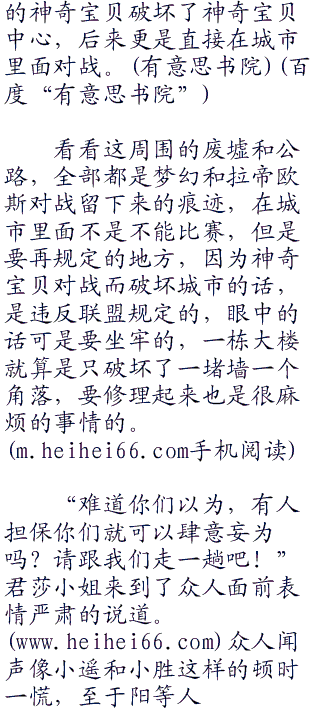 的神奇宝贝破坏了神奇宝贝
中心，后来更是直接在城市
里面对战。(有意思书院)(百
度“有意思书院”)
看看这周围的废墟和公
路，全部都是梦幻和拉帝欧
斯对战留下来的痕迹，在城
市里面不是不能比赛，但是
要再规定的地方，因为神奇
宝贝对战而破坏城市的话，
是违反联盟规定的，眼中的
话可是要坐牢的，一栋大楼
就算是只破坏了一堵墙一个
角落，要修理起来也是很麻
烦的事情的。
(m.heihei66.com手机阅读)
“难道你们以为，有人
担保你们就可以肆意妄为
吗？请跟我们走一趟吧！”
君莎小姐来到了众人面前表
情严肃的说道。
(www.heihei66.com)众人闻
声像小遥和小胜这样的顿时
一慌，至于阳等人